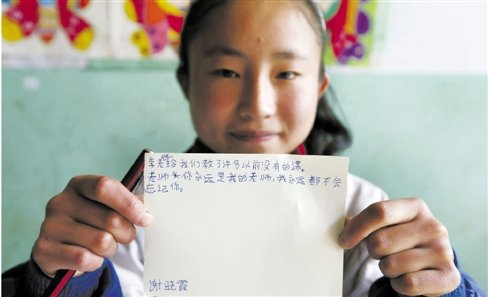 李老师给我们教了许多以前没有的课。
老师头你永远是我的老师,我永远都不会
忘记你。
谢晓霞